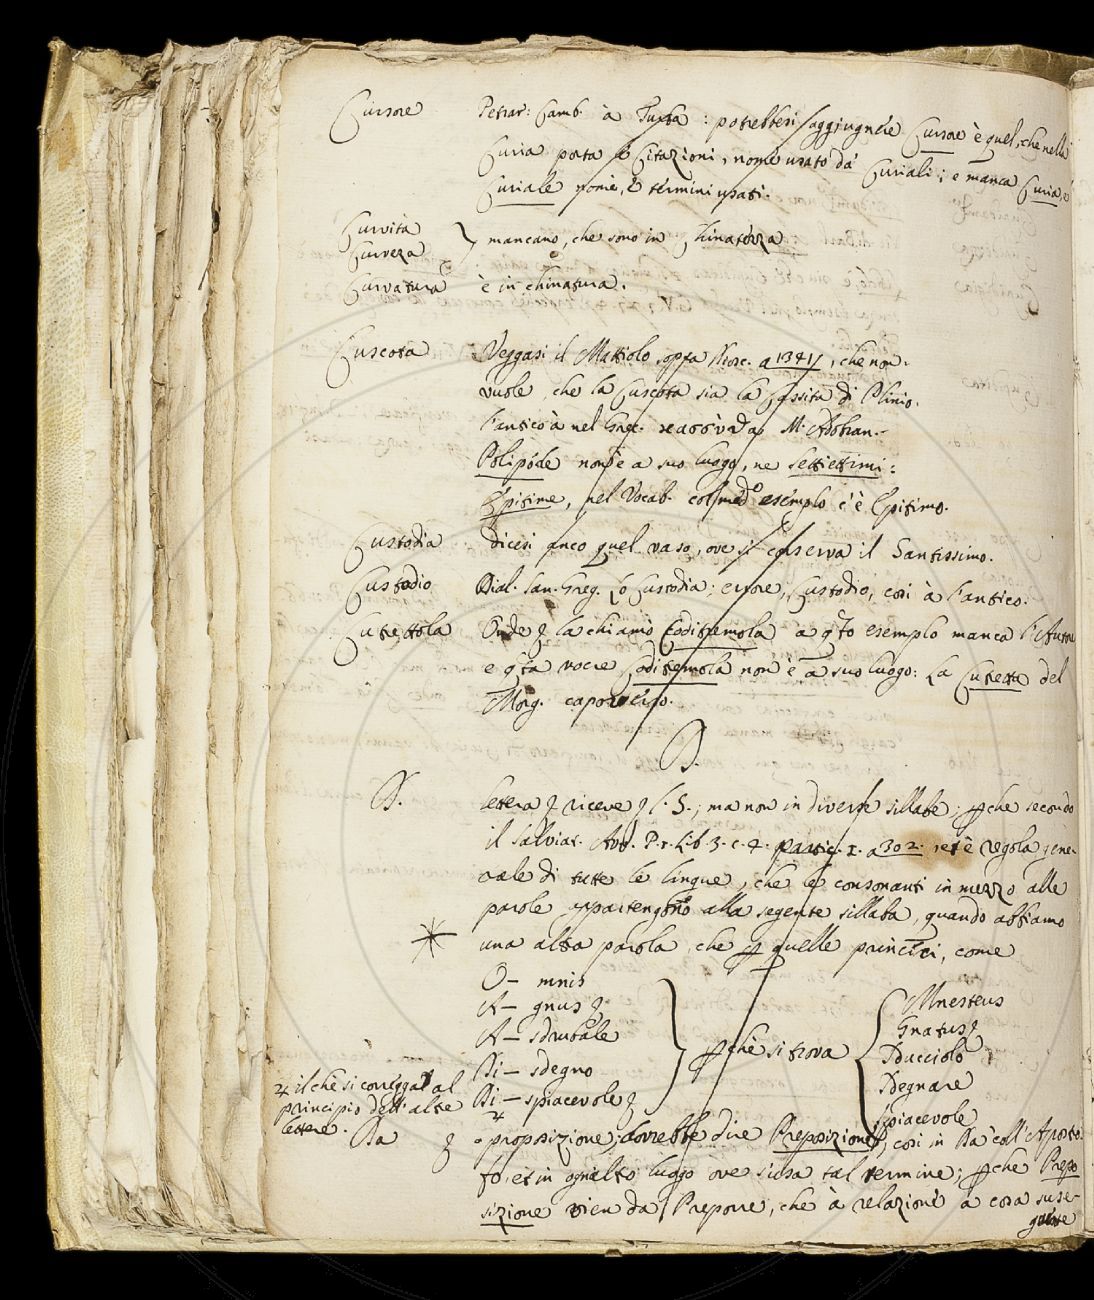 Cursore Petrar: Camb. à Tuffa: potrebbesi soggiugnére Cursore è quel, che nella
Curia porta le Citazioni, nome usato da' Curiali; e manca Curia, e
Curiale nome, e termini usati.
Curvità
Curveza } mancano, che sono in Chinatezza
Curvatura è in chinatura.
Cuscota Veggasi il Mattiolo sopra Diosc. a 1341, che non
vuole, che la Cuscota sia la Cassita di Plinio.
l'antico à nel Grec. M. Adrian.
Polipóde non è a suo luogo, ne settettimi:
Epitime, nel Vocab. col med.o esémplo c'è Epitimo.
Custodia dicesi anco quel vaso, ove si conserva il Santissimo.
Custodio Dial. San. Greg. Lo Custodia; errore, Custodio, così à l'antico.
Cutrettola Onde la chiamò Coditremola a q.to esemplo manca l'Autore
e q.ta voce Coditremola non è a suo luogo: La Cutretta del
Morg.
D.
D. lettera riceve l. S.; ma non in diverse sillabe; p che secondo
il Salviat. Avv. P. 1. Lib 3. c. 4. partic. 1. a 302. ret è regola gene-
rale di tutte le lingue, che le consonanti in mezzo alle
parole appartengono alla segente sillaba, quando abbiamo
una altra parola, che p quelle principi, come
O- mnis
A- gnus
A- sdrubale
Di- sdegno
Di- spiacevole
p chè si trova
Mnesteus
Gnatus
Sducciolo
Sdegnare
spiacevole
il che si corregga al
principio dell'altre
lettere.
Da proposizione; dovrebbe dire Preposizione, così in Da coll'Aposto-
fo, et in ognaltro luogo ove siusa tal termine; p che Prepo
sizione vien da Preporre, che à relazione a cosa suse-
guente